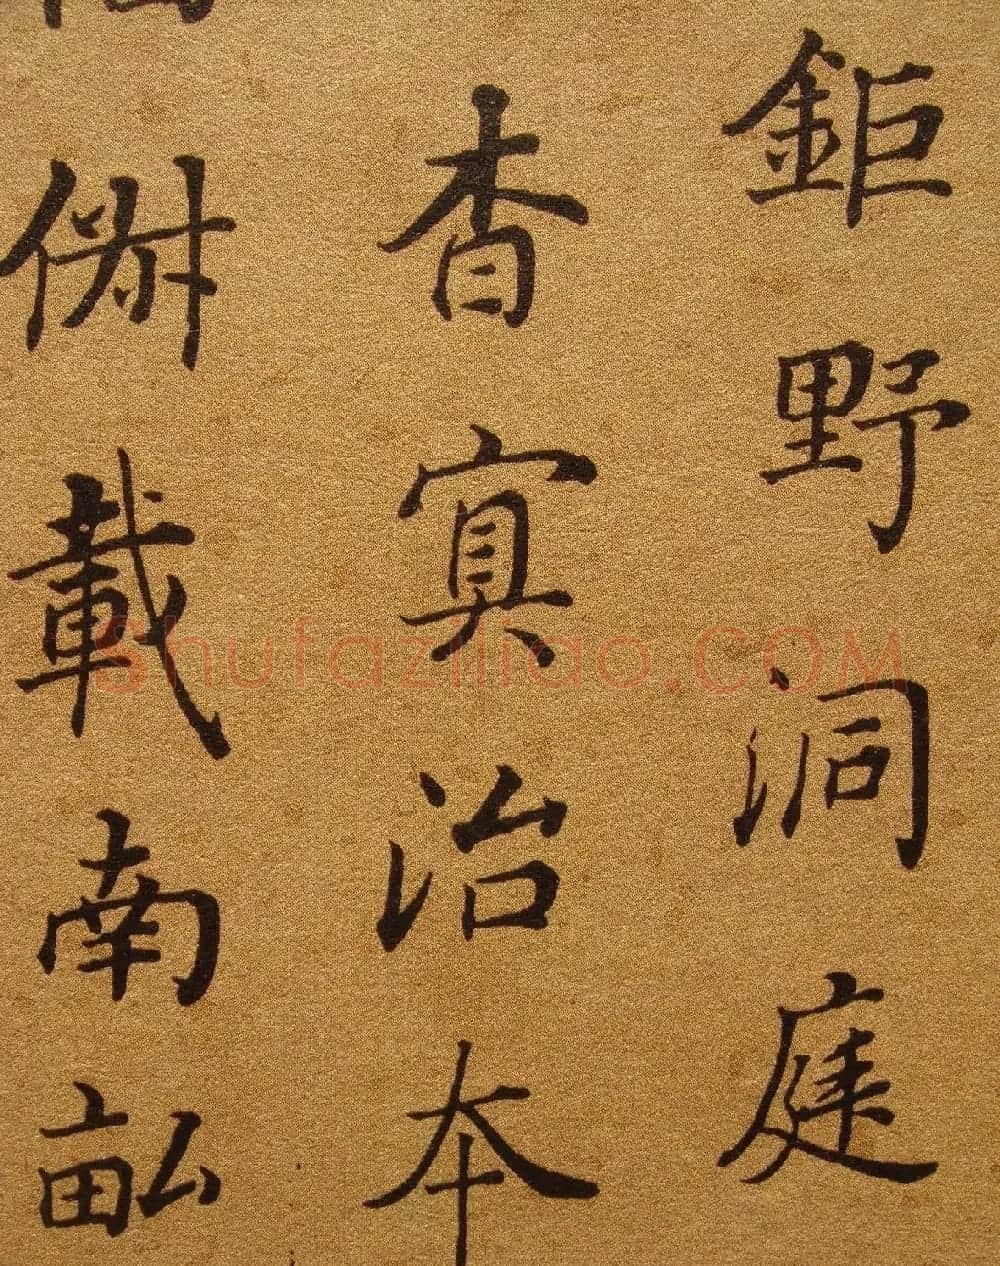 鉅野洞庭
杳冥治本
俶載南畝
Shufaziliao.COM